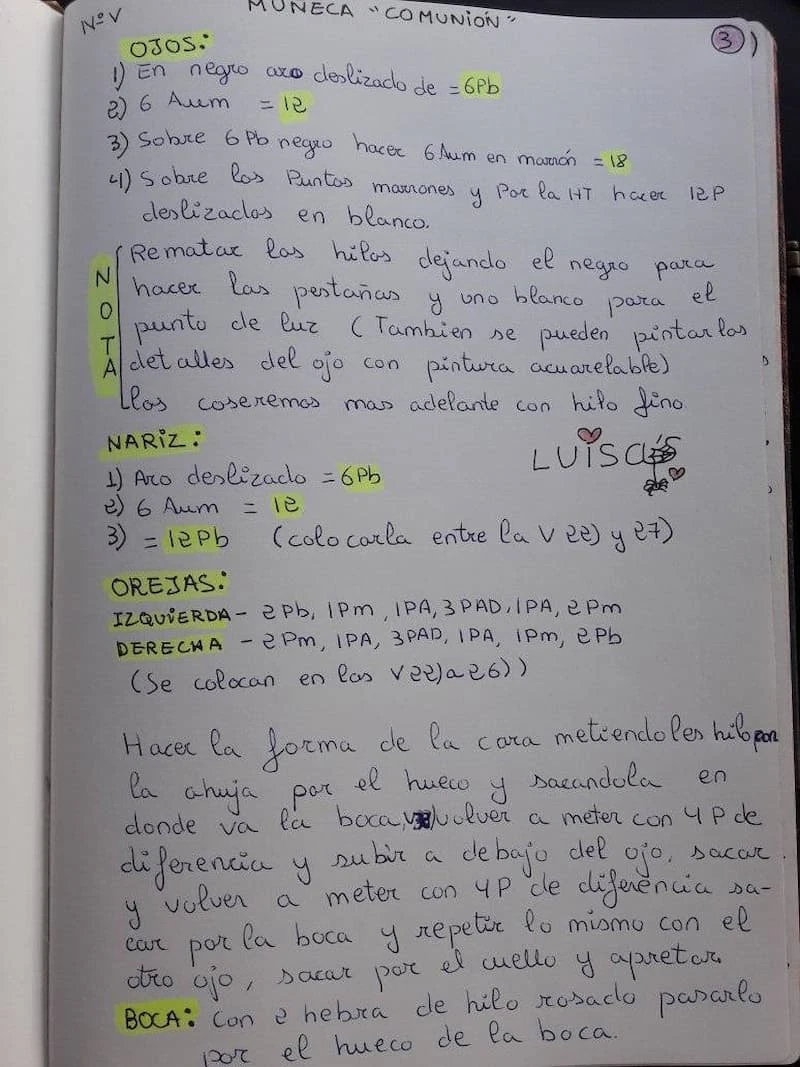 Nº V
MUÑECA "COMUNIÓN"
3)
OJOS:
1) En negro aro deslizado de = 6Pb
2) 6 Aum = 12
3) Sobre 6 Pb negro hacer 6 Aum en marrón = 18
4) Sobre los Puntos marrones y Por la HT hacer 12P
deslizados en blanco.
NOTA
Rematar los hilos dejando el negro para
hacer las pestañas y uno blanco para el
punto de luz (Tambien se pueden pintar los
detalles del ojo con pintura acuarelable)
los coseremos mas adelante con hilo fino
NARIZ:
LUISA
1) Aro deslizado = 6Pb
2) 6 Aum = 12
3) = 12Pb (colocarla entre la V 22) y 27)
OREJAS:
IZQUIERDA - 2Pb, 1Pm, 1PA, 3PAD, 1PA, 2Pm
DERECHA - 2Pm, 1PA, 3PAD, 1PA, 1Pm, 2Pb
(Se colocan en las V22) a 26))
Hacer la forma de la cara metiendoles hilo por
la ahuja por el hueco y sacandola en
donde va la boca, volver a meter con 4P de
diferencia y subir a debajo del ojo, sacar
y volver a meter con 4P de diferencia sa-
car por la boca y repetir lo mismo con el
otro ojo, sacar por el cuello y apretar.
BOCA: Con 2 hebra de hilo rosado pasarlo
por el hueco de la boca.